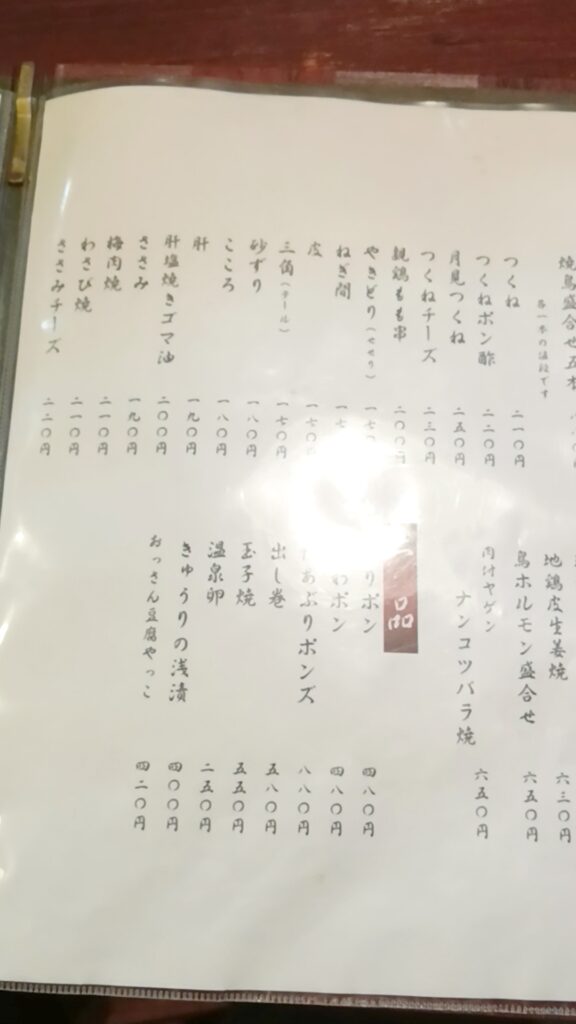 焼鳥盛合せ五本
各一本の値段です
つくね 二一〇円
つくねポン酢 二二〇円
月見つくね 二五〇円
つくねチーズ 二三〇円
親鶏もも串 二〇〇円
やきどり(せせり)
ねぎ間
皮
三角(テール) 一七〇円
砂ずり 一八〇円
こころ 一八〇円
肝 一九〇円
肝塩焼きゴマ油 二〇〇円
ささみ 一九〇円
梅肉焼 二一〇円
わさび焼 二一〇円
ささみチーズ 二二〇円
地鶏皮生姜焼 六三〇円
鳥ホルモン盛合せ 六五〇円
肉付ヤゲン
ナンコツバラ焼 六五〇円
品
りポン 四八〇円
わポン 四八〇円
あぶりポンズ 八八〇円
出し巻 五八〇円
玉子焼 五五〇円
温泉卵 二五〇円
きゅうりの浅漬 四〇〇円
おっさん豆腐やっこ 四二〇円